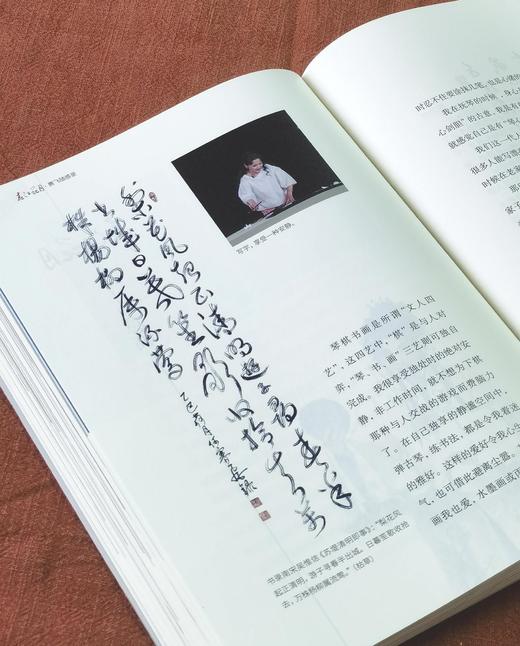 随感录
写字,享受一种安静。
梨花风起正清明游子寻春半
出城日暮笙歌收拾去万
株杨柳属流莺
琴棋书画是所谓“文人四
艺”,这四艺中,“棋”是与人对
弈,“琴、书、画”三艺则可独自
完成。我很享受独处时的绝对安
静,非工作时间,就不想为下棋
那种与人交战的游戏而费脑力
了。在自己独享的静谧空间中,
弹古琴,练书法,都是令我着迷
的雅好。这样的爱好令我心生
气,也可借此避离尘嚣。
画我也爱,水墨画或
书录南宋吴惟信《苏堤清明即事》:“梨花风
起正清明,游子寻春半出城。日暮笙歌收拾
去,万株杨柳属流莺。”(枯草)
时忍不住要涂抹几笔,也是心情的
我在抚琴的时候,身心
心剑胆”的古意,我是有
就感觉自己是有“琴心
我们这一代人
很多人能写漂
时候在老家
家子